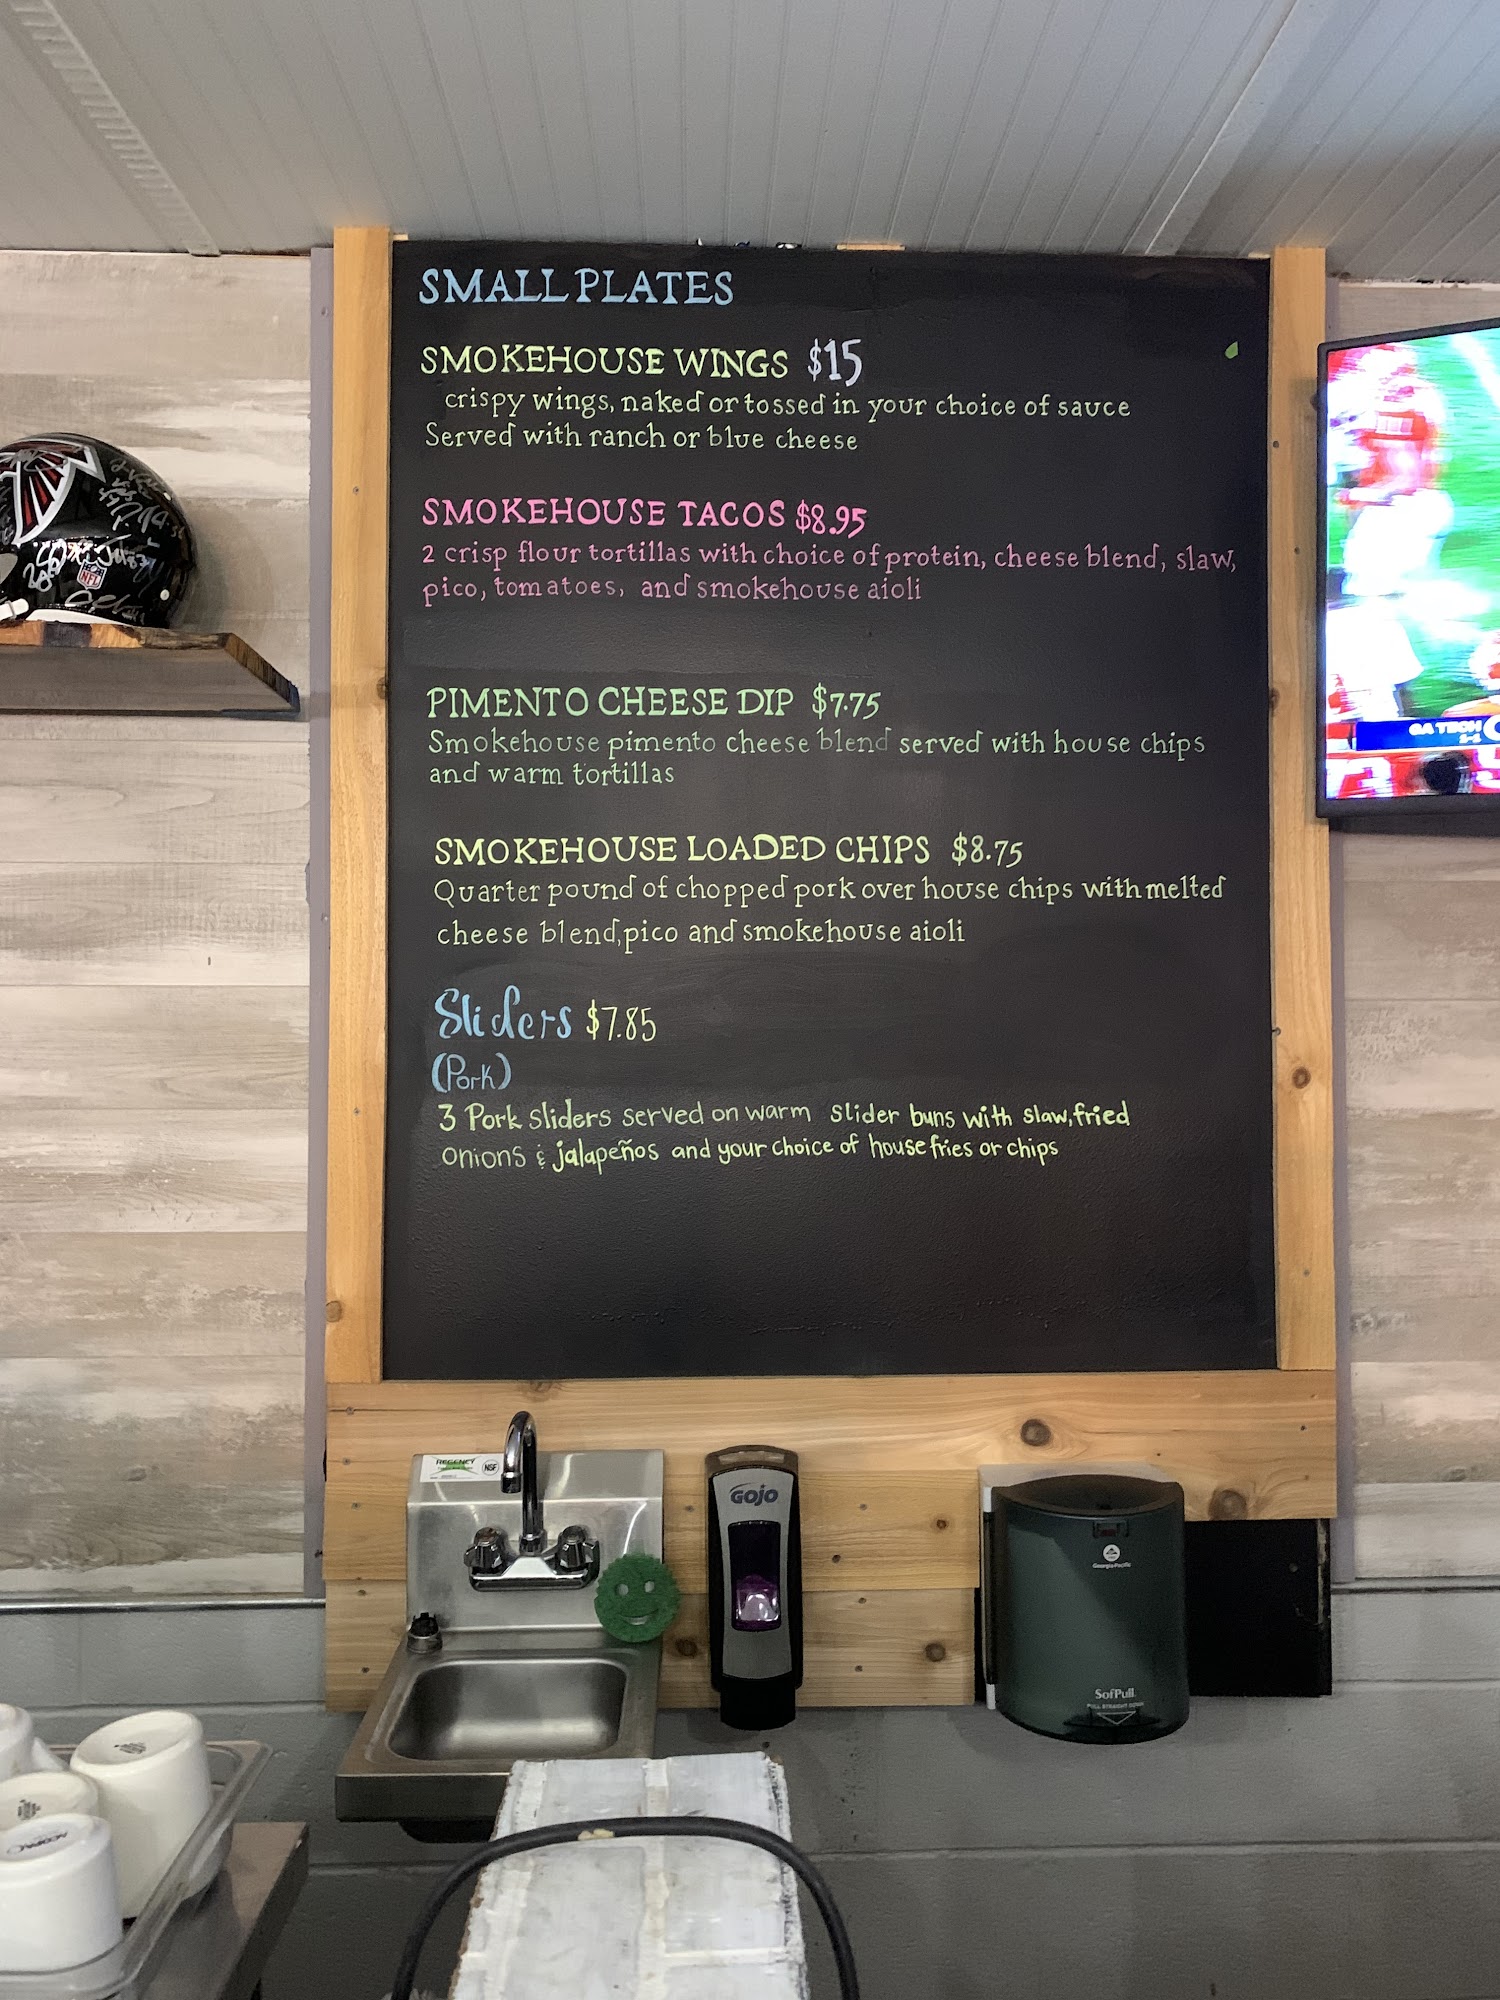 SMALL PLATES
SMOKEHOUSE WINGS $15
crispy wings, naked or tossed in your choice of sauce
Served with ranch or blue cheese
SMOKEHOUSE TACOS $8.95
2 crisp flour tortillas with choice of protein, cheese blend, slaw,
pico, tomatoes, and smokehouse aioli
PIMENTO CHEESE DIP $7.75
Smokehouse pimento cheese blend served with house chips
and warm tortillas
SMOKEHOUSE LOADED CHIPS $8.75
Quarter pound of chopped pork over house chips with melted
cheese blend, pico and smokehouse aioli
Sliders $7.85
(Pork)
3 Pork sliders served on warm slider buns with slaw, fried
onions & jalapeños and your choice of house fries or chips
NFL
GA TECH
REGENCY
NSF
GOJO
Georgia-Pacific
SofPull
PULL STRAIGHT DOWN